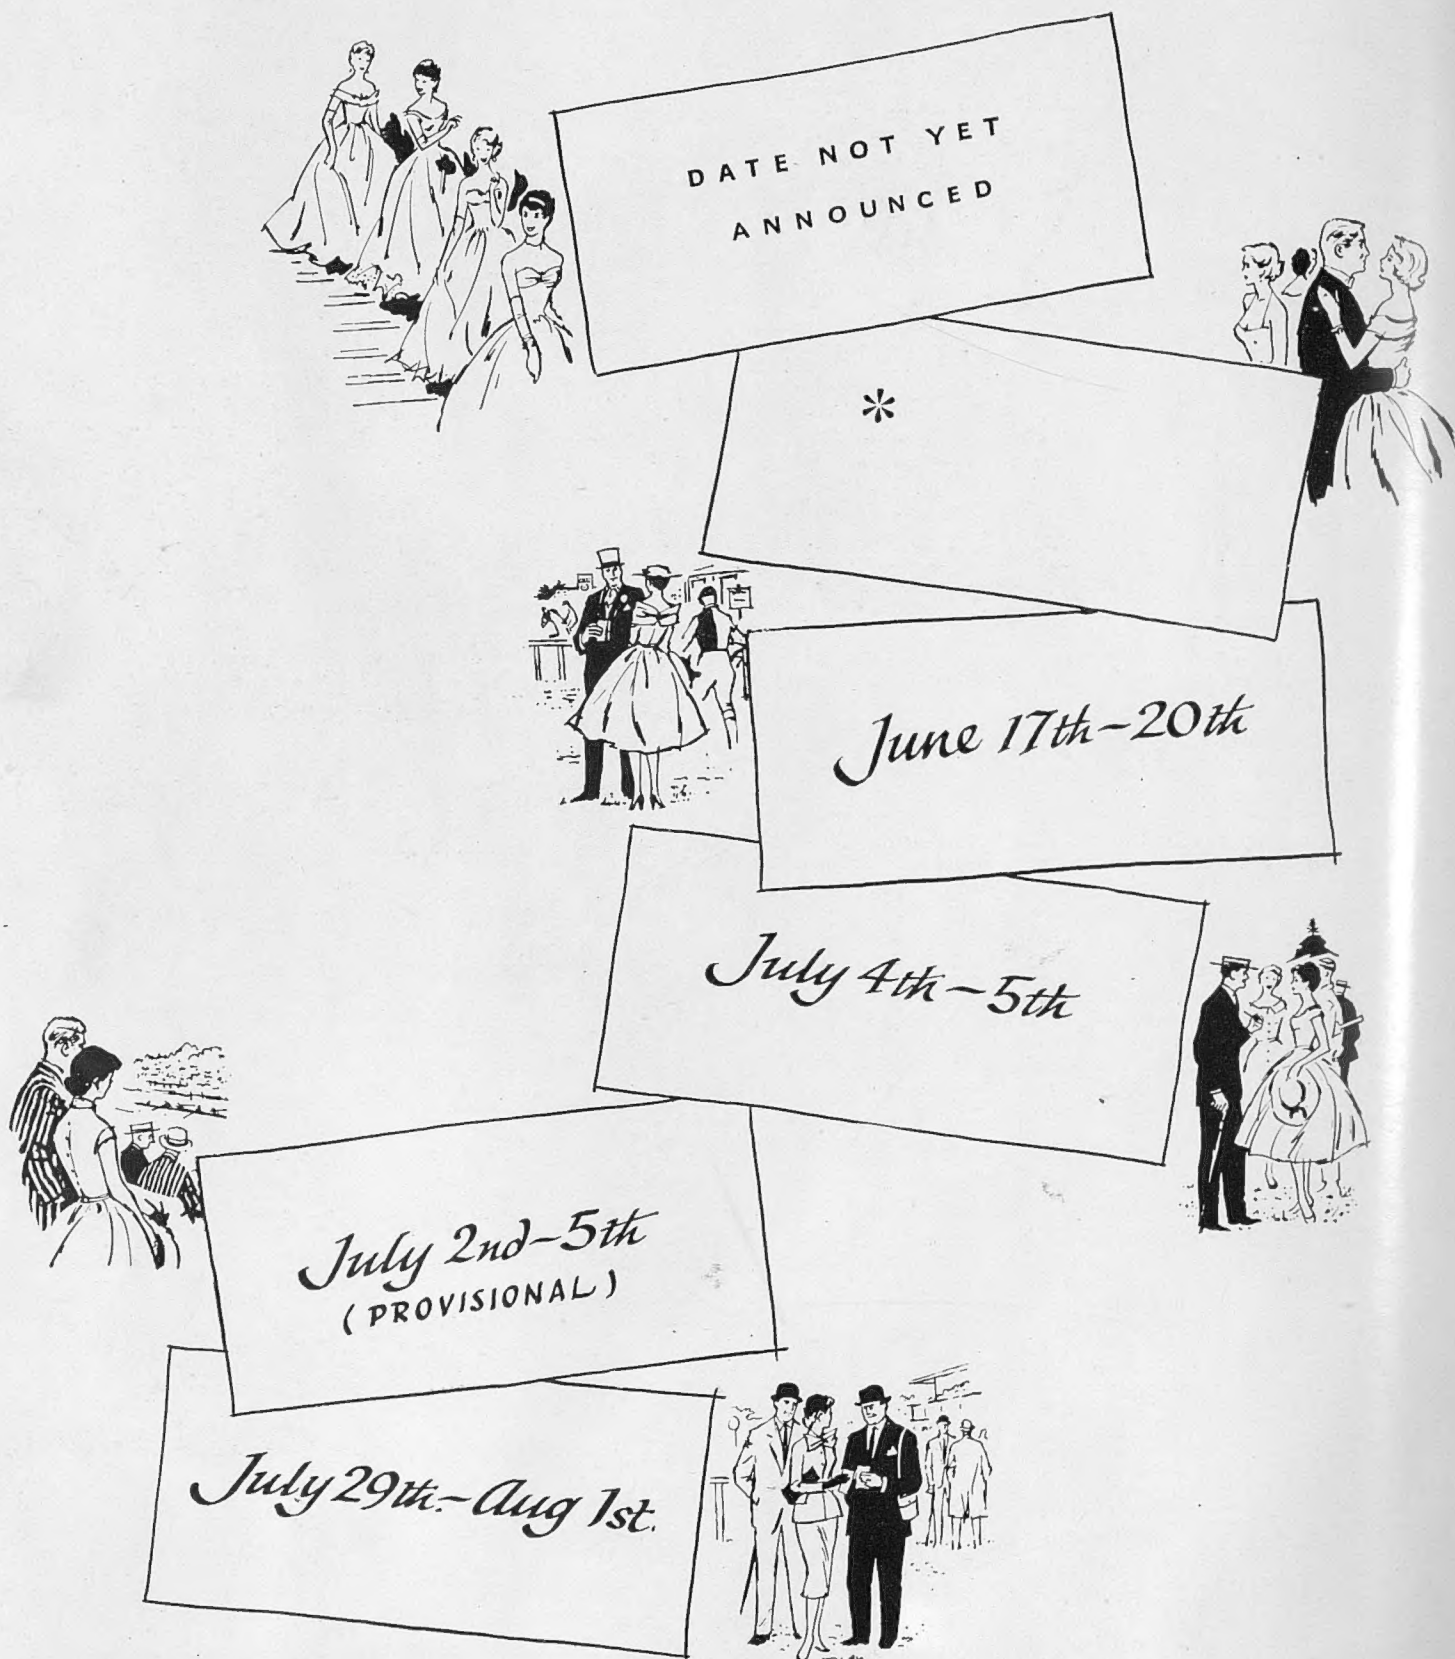 DATE NOT YET
ANNOUNCED
*
June 17th-20th
July 4th-5th
July 2nd-5th
(PROVISIONAL)
July 29th.-Aug 1st.